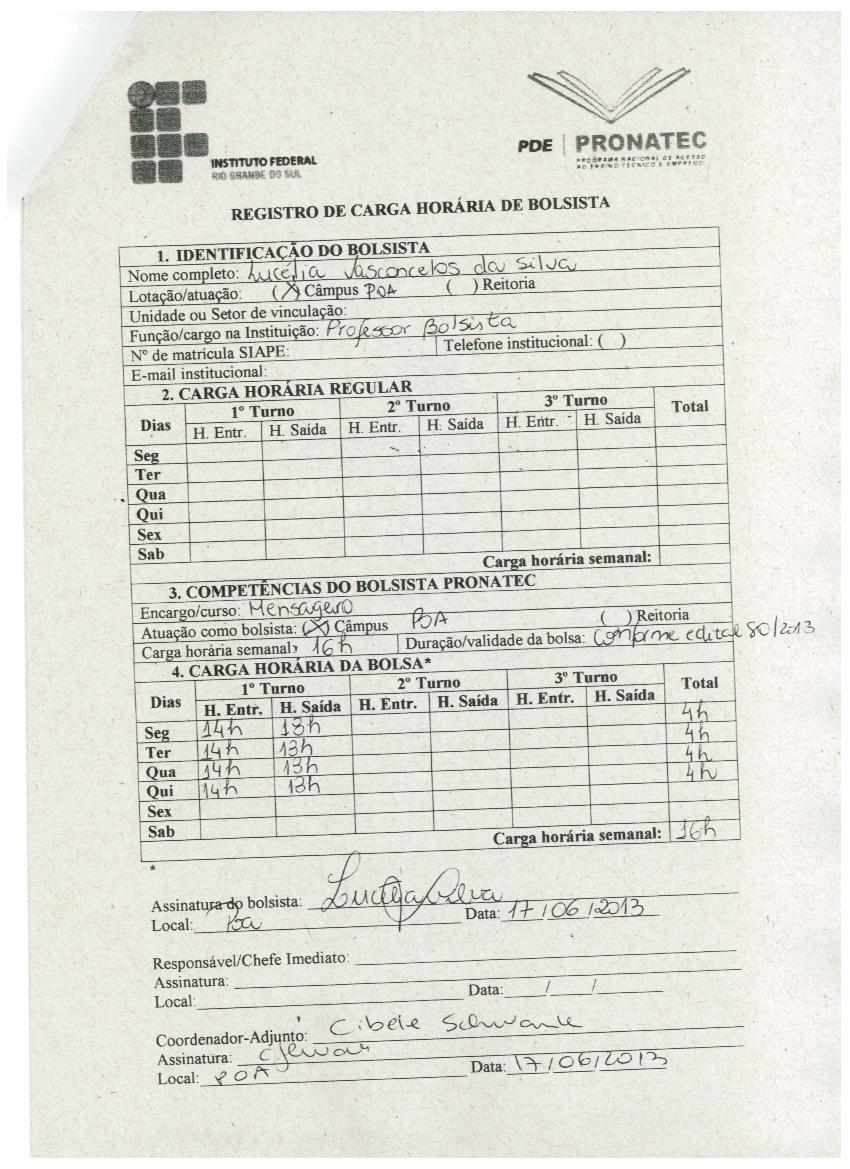 INSTITUTO FEDERAL
RIO GRANDE DO SUL
PDE | PRONATEC
PROGRAMA NACIONAL DE ACESSO
AO ENSINO TÉCNICO E EMPREGO
REGISTRO DE CARGA HORÁRIA DE BOLSISTA
1. IDENTIFICAÇÃO DO BOLSISTA
Nome completo: Lucélia Vasconcelos da Silva
Lotação/atuação: (X) Câmpus POA ( ) Reitoria
Unidade ou Setor de vinculação:
Função/cargo na Instituição: Professor Bolsista
Nº de matrícula SIAPE: Telefone institucional: ( )
E-mail institucional:
2. CARGA HORÁRIA REGULAR
Dias 1º Turno 2º Turno 3º Turno Total
H. Entr. H. Saída H. Entr. H. Saída H. Entr. H. Saída
Seg
Ter
Qua
Qui
Sex
Sab
Carga horária semanal:
3. COMPETÊNCIAS DO BOLSISTA PRONATEC
Encargo/curso: Mensageiro
Atuação como bolsista: (X) Câmpus POA ( ) Reitoria
Carga horária semanal: 16h Duração/validade da bolsa: Conforme edital 80/2013
4. CARGA HORÁRIA DA BOLSA*
Dias 1º Turno 2º Turno 3º Turno Total
H. Entr. H. Saída H. Entr. H. Saída H. Entr. H. Saída
Seg 14h 18h 4h
Ter 14h 13h 4h
Qua 14h 13h 4h
Qui 14h 13h 4h
Sex
Sab
Carga horária semanal: 16h
*
Assinatura do bolsista: Lucélia Silva
Local: Poa Data: 17/06/2013
Responsável/Chefe Imediato:
Assinatura:
Local: Data: / /
Coordenador-Adjunto: Cibele Schwanke
Assinatura:
Local: POA Data: 17/06/2013